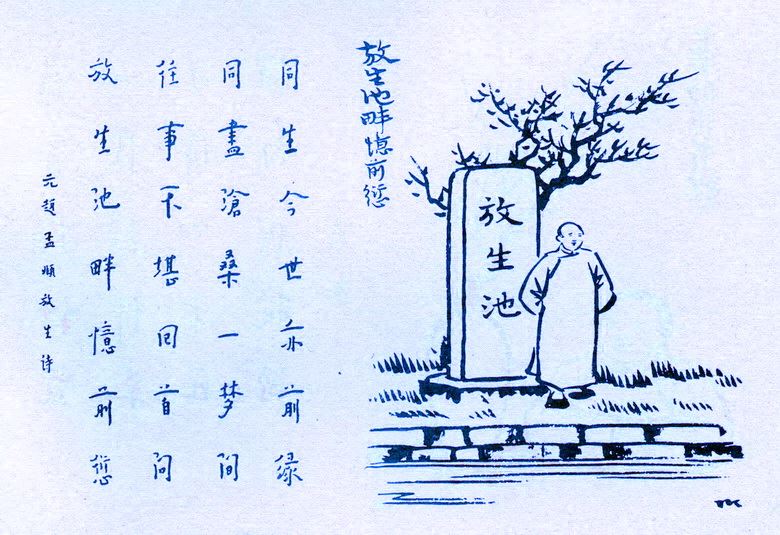 放生池畔憶前愆
放生池
同生今世亦前缘
同盡滄桑一梦间
往事不堪回首问
放生池畔憶前愆
元趙孟頫放生诗
TK